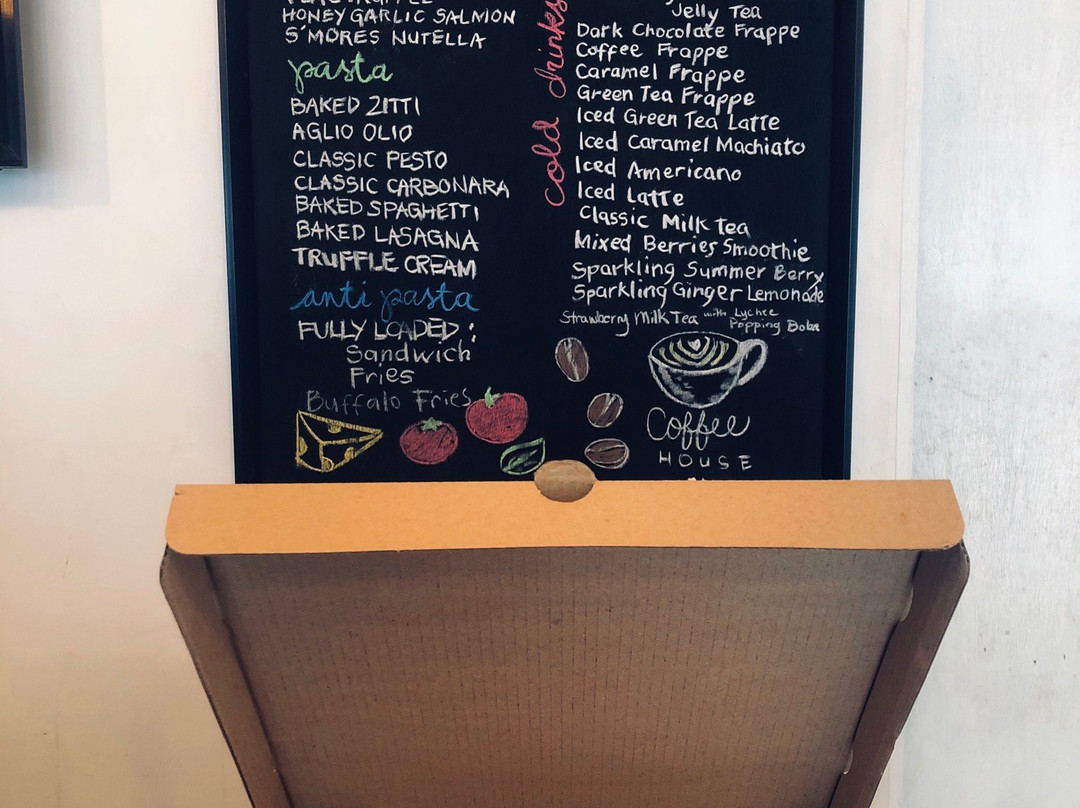 HONEY GARLIC SALMON
S'MORES NUTELLA
pasta
BAKED ZITTI
AGLIO OLIO
CLASSIC PESTO
CLASSIC CARBONARA
BAKED SPAGHETTI
BAKED LASAGNA
TRUFFLE CREAM
anti pasta
FULLY LOADED:
Sandwich
Fries
Buffalo Fries
cold drinks
Jelly Tea
Dark Chocolate Frappe
Coffee Frappe
Caramel Frappe
Green Tea Frappe
Iced Green Tea Latte
Iced Caramel Machiato
Iced Americano
Iced Latte
Classic Milk Tea
Mixed Berries Smoothie
Sparkling Summer Berry
Sparkling Ginger Lemonade
Strawberry Milk Tea with Lychee
Popping Boba
Coffee
HOUSE